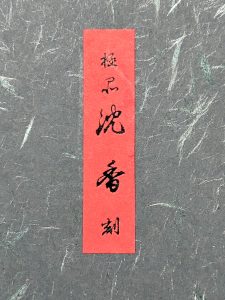 極品沈香割